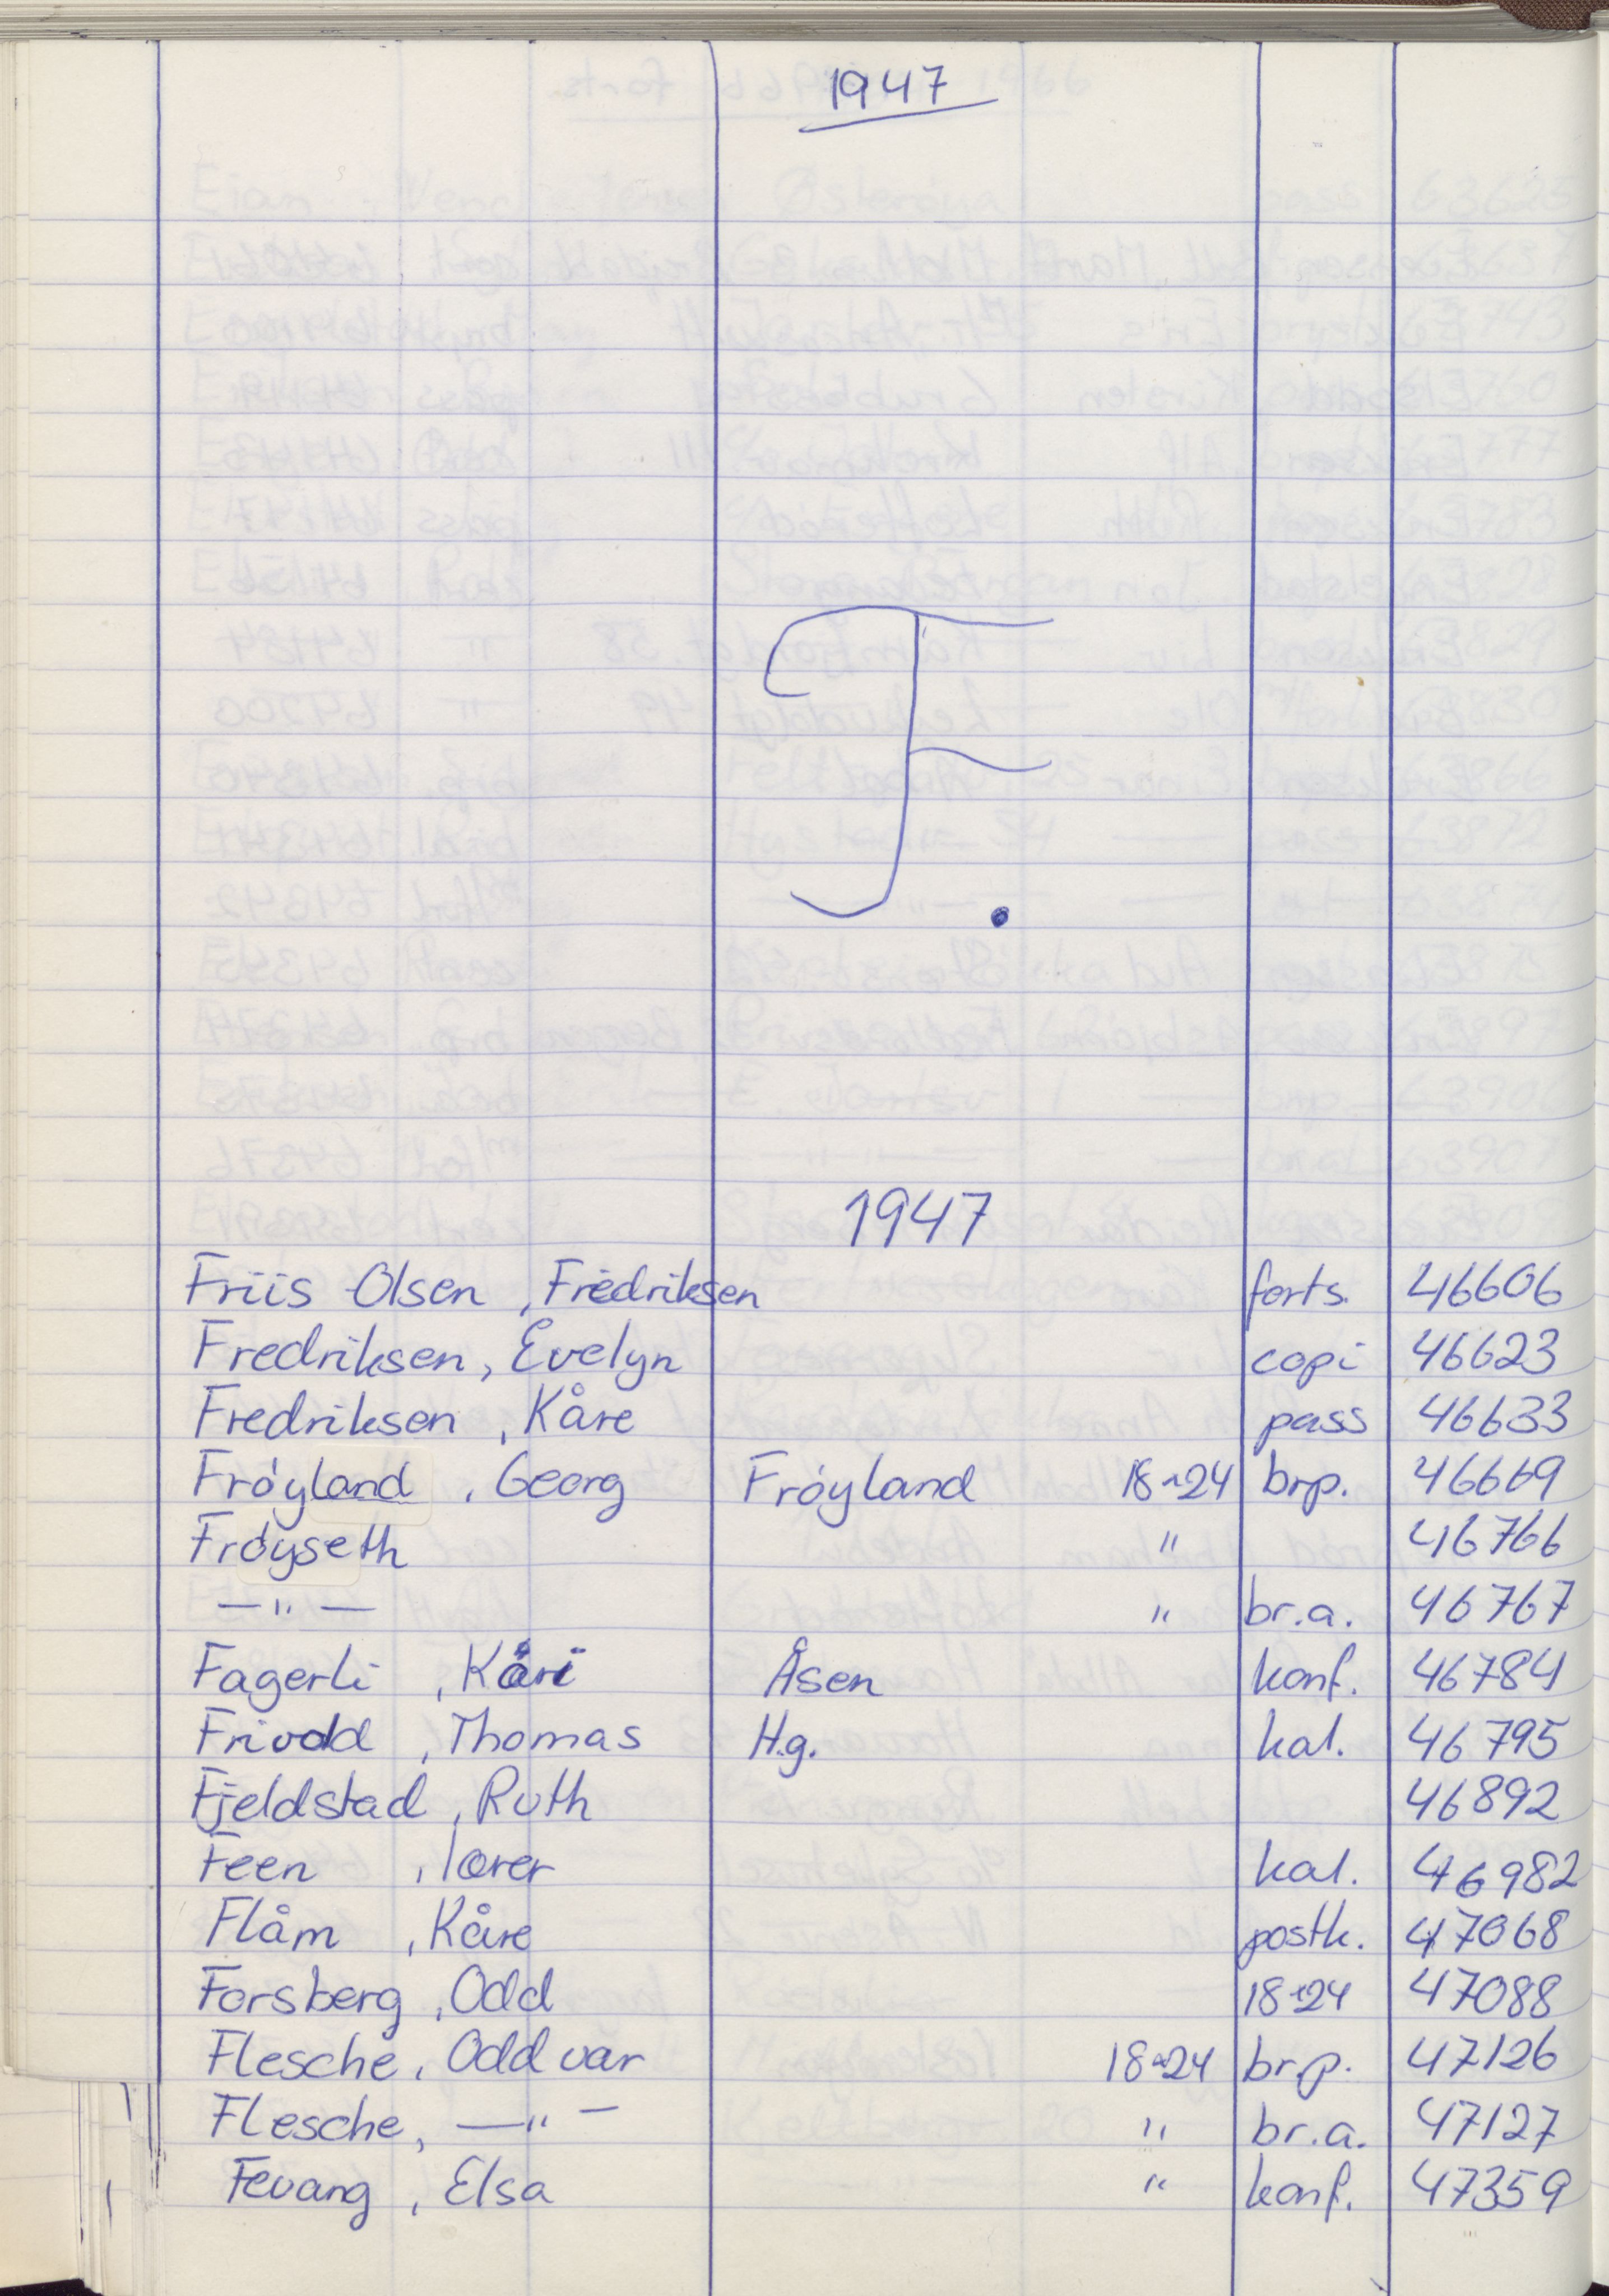 1947
F.
1947
Friis Olsen, Fredriksen forts. 46606
Fredriksen, Evelyn copi 46623
Fredriksen, Kåre pass 46633
Frøyland, Georg Frøyland 18-24 brp. 46669
Frøyseth " 46766
—"— " br.a. 46767
Fagerli, Kåri Åsen konf. 46784
Frivold, Thomas H.g. kal. 46795
Fjeldstad, Ruth 46892
Feen, lærer kal. 46982
Flåm, Kåre postk. 47068
Forsberg, Odd 18-24 47088
Flesche, Oddvar 18-24 br.p. 47126
Flesche, —"— " br.a. 47127
Fevang, Elsa " konf. 47359